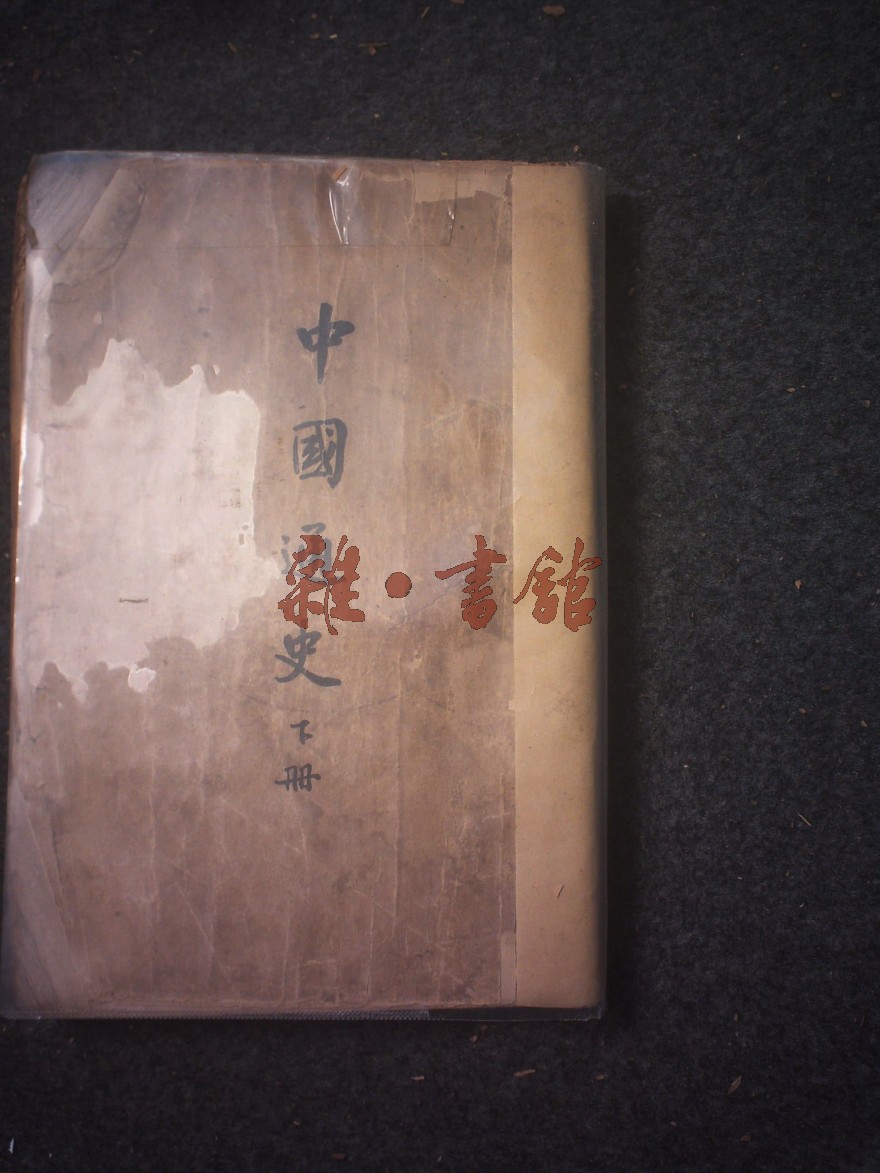 中國通史
下册
雜·書館